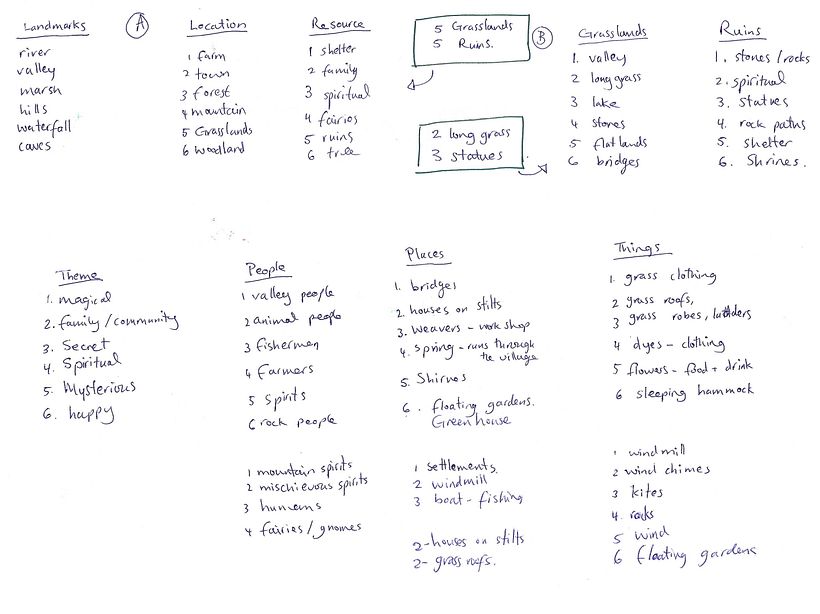 Landmarks
river
valley
marsh
hills
waterfall
caves
A
Location
1 farm
2 town
3 forest
4 mountain
5 Grasslands
6 woodland
Resource
1 shelter
2 family
3 spiritual
4 fairies
5 ruins
6 tree
5 Grasslands
5 Ruins.
2 long grass
3 statues
B
Grasslands
1. valley
2 long grass
3 lake
4 stones
5 flatlands
6 bridges
Ruins
1. stones/rocks
2. spiritual
3. Statues
4. rock paths
5. shelter
6. Shrines.
Theme
1. magical
2. family/community
3. Secret
4. Spiritual
5. Mysterious
6. happy
People
1 valley people
2 animal people
3 fishermen
4 farmers
5 spirits
6 rock people
1 mountain spirits
2 mischievous spirits
3 humans
4 fairies/gnomes
Places
1. bridges
2. houses on stilts
3. Weavers - work shop
4. Spring - runs through
the village
5. Shrines
6. floating gardens.
Greenhouse
1 settlements.
2 windmill
3 boat - fishing
2 - houses on stilts
2 - grass roofs.
Things
1. grass clothing
2 grass roofs,
3 grass robes, ladders
4 dyes - clothing
5 flowers - food + drink
6 sleeping hammock
1 windmill
2 wind chimes
3 kites
4. rocks
5 wind
6 floating gardens